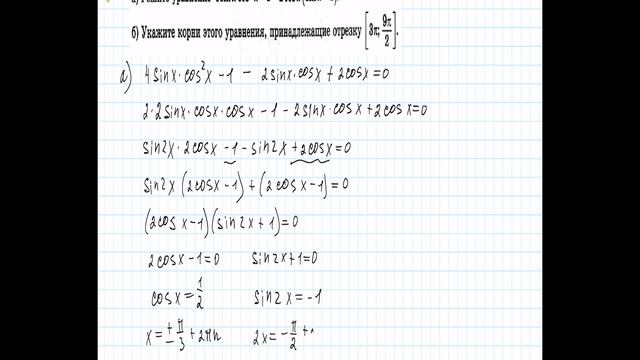 б) Укажите корни этого уравнения, принадлежащие отрезку [3π; 9π/2].
а) 4 sinx · cos²x − 1 − 2sinx · cosx + 2cosx = 0
2 · 2 sinx · cosx · cosx − 1 − 2 sinx · cosx + 2cosx = 0
sin2x · 2cosx − 1 − sin2x + 2cosx = 0
sin2x (2cosx − 1) + (2cosx − 1) = 0
(2cosx − 1)(sin2x + 1) = 0
2cosx − 1 = 0 sin2x + 1 = 0
cosx = 1/2 sin2x = −1
x = ± π/3 + 2πn 2x = − π/2 +